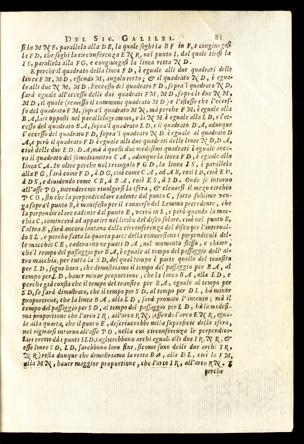 DEL SIG. GALILEI. 81
si le MNF, parallela alla DE, la quale seghi la BF in F, e congiungasi
le FD, che seghi la circonferenza ENR, nel punto I, dal quale tirisi la
IS, parallela alla FG, e congiungasi la linea retta ND.
E perche il quadrato della linea FD, è eguale alli due quadrati delle
linee FM, MD, essendo M, angolo retto; & il quadrato ND, è egua-
le alli due NM, MD, l'eccesso del quadrato FD, sopra'l quadrato ND,
sarà eguale all'eccesso delli due quadrati FM, MD, sopra le due NM,
MD, il quale (tralascato il comune quadrato MD) è l'istesso che l'ecces-
so del quadrato FM, sopra'l quadrato MN, ma perche FM, è eguale alla
BA, lati opposti nel parallelogrammo, e la NM è eguale alla LD, e l'ec-
cesso del quadrato BA, sopra'l quadrato LD, è il quadrato DA, adunque
l'eccesso del quadrato FD, sopra'l quadrato ND, è eguale al quadrato D
A; e però il quadrato FD è eguale alli due quadrati delle linee ND, DA,
cioè delle due ED, DA, ma à quelli due medesimi quadrati è eguale anco-
ra il quadrato del semidiametro CA, adunque la linea FD, è eguale alla
linea CA. In oltre perche nel triangolo FGD, la linea IS, è parallela
alla FG, sarà come FD, à DG, cioè come CA, ad AB, così ID, cioè ED,
à DS, e dividendo come CB, à BA, così ES, à SD. Onde se intorno
all'asse PO, intenderemo rivolgersi la sfera, & elevarsi il mezo cerchio
PCO, sin che la perpendicolare cadente dal punto C,
ga sopra'l punto B, è manifesto per il converso del Lemma precedente, che
la perpendicolare cadente dal punto E, verrà in S, e però quando la mac-
chia C, comincerà ad apparire nel lembo del disco solare, cioè nel punto B,
l'altra E, sarà ancora lontana dalla circonferenza del disco per l'interval-
lo SL. e perche finita la quarta parte della conversione i perpendicoli del-
le macchie CE, caderanno ne' punti DA, nel momento stesso, e chiaro,
che'l tempo del passaggio per BA, è eguale al tempo del passaggio dell' al-
tra macchia, per tutta la SD, del qual tempo è parte quello del transito
per LD, segue hora, che dimostriamo il tempo del passaggio per BA, al
tempo per LD, haver minor proportione, che la linea BA, alla LD, e
perche già consta che il tempo del transito per BA, eguale al tempo per
SD, se sarà dimostrato, che il tempo per SD, al tempo per DL, hà minor
proportione, che la linea BA, alla LD, sarà provato l'intento; ma il
tempo del passaggio per SD, al tempo del passaggio per LD, hà la medesi-
ma proportione che l'arco IR, all'arco RN,
li, & 
esse linee SD, LD,
NR) resta dunque che dimostriamo la retta BA, alla DL, cioè la FM,
alla MN, haver maggior proportione, che l'arco IR, all'arco RN, &
perche